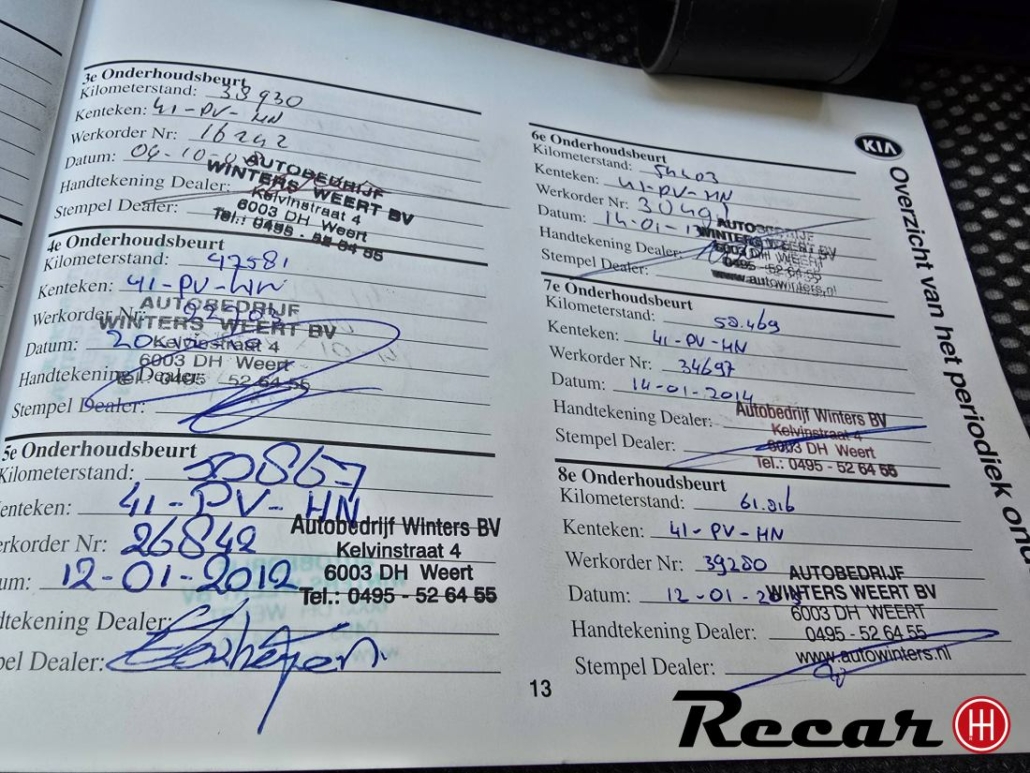 3e Onderhoudsbeurt
Kilometerstand: 38930
Kenteken: 41-PV-HN
Werkorder Nr: 16242
Datum: 06-10-0
Handtekening Dealer:
Stempel Dealer:
AUTOBEDRIJF
WINTERS WEERT BV
Kelvinstraat 4
6003 DH Weert
Tel.: 0495 - 52 64 55
4e Onderhoudsbeurt
Kilometerstand: 47581
Kenteken: 41-PV-HN
Werkorder Nr:
Datum:
Handtekening Dealer:
Stempel Dealer:
AUTOBEDRIJF
WINTERS WEERT BV
Kelvinstraat 4
6003 DH Weert
Tel. 0495 - 52 64 55
5e Onderhoudsbeurt
Kilometerstand: 50867
Kenteken: 41-PV-HN
Werkorder Nr: 26842
um: 12-01-2012
dtekening Dealer:
pel Dealer:
Autobedrijf Winters BV
Kelvinstraat 4
6003 DH Weert
Tel.: 0495 - 52 64 55
6e Onderhoudsbeurt
Kilometerstand: 54403
Kenteken: 41-PV-HN
Werkorder Nr:
Datum: 14-01-1
Handtekening Dealer:
Stempel Dealer:
AUTOBEDRIJF
WINTERS WEERT BV
6003 DH WEERT
0495 - 52 64 55
www.autowinters.nl
7e Onderhoudsbeurt
Kilometerstand: 58.469
Kenteken: 41-PV-HN
Werkorder Nr: 34697
Datum: 14-01-2014
Handtekening Dealer:
Stempel Dealer:
Autobedrijf Winters BV
Kelvinstraat 4
6003 DH Weert
Tel.: 0495 - 52 64 55
8e Onderhoudsbeurt
Kilometerstand: 61.816
Kenteken: 41-PV-HN
Werkorder Nr: 39280
Datum: 12-01-20
Handtekening Dealer:
Stempel Dealer:
AUTOBEDRIJF
WINTERS WEERT BV
6003 DH WEERT
0495 - 52 64 55
www.autowinters.nl
KIA
Overzicht van het periodiek ond
13
Recar